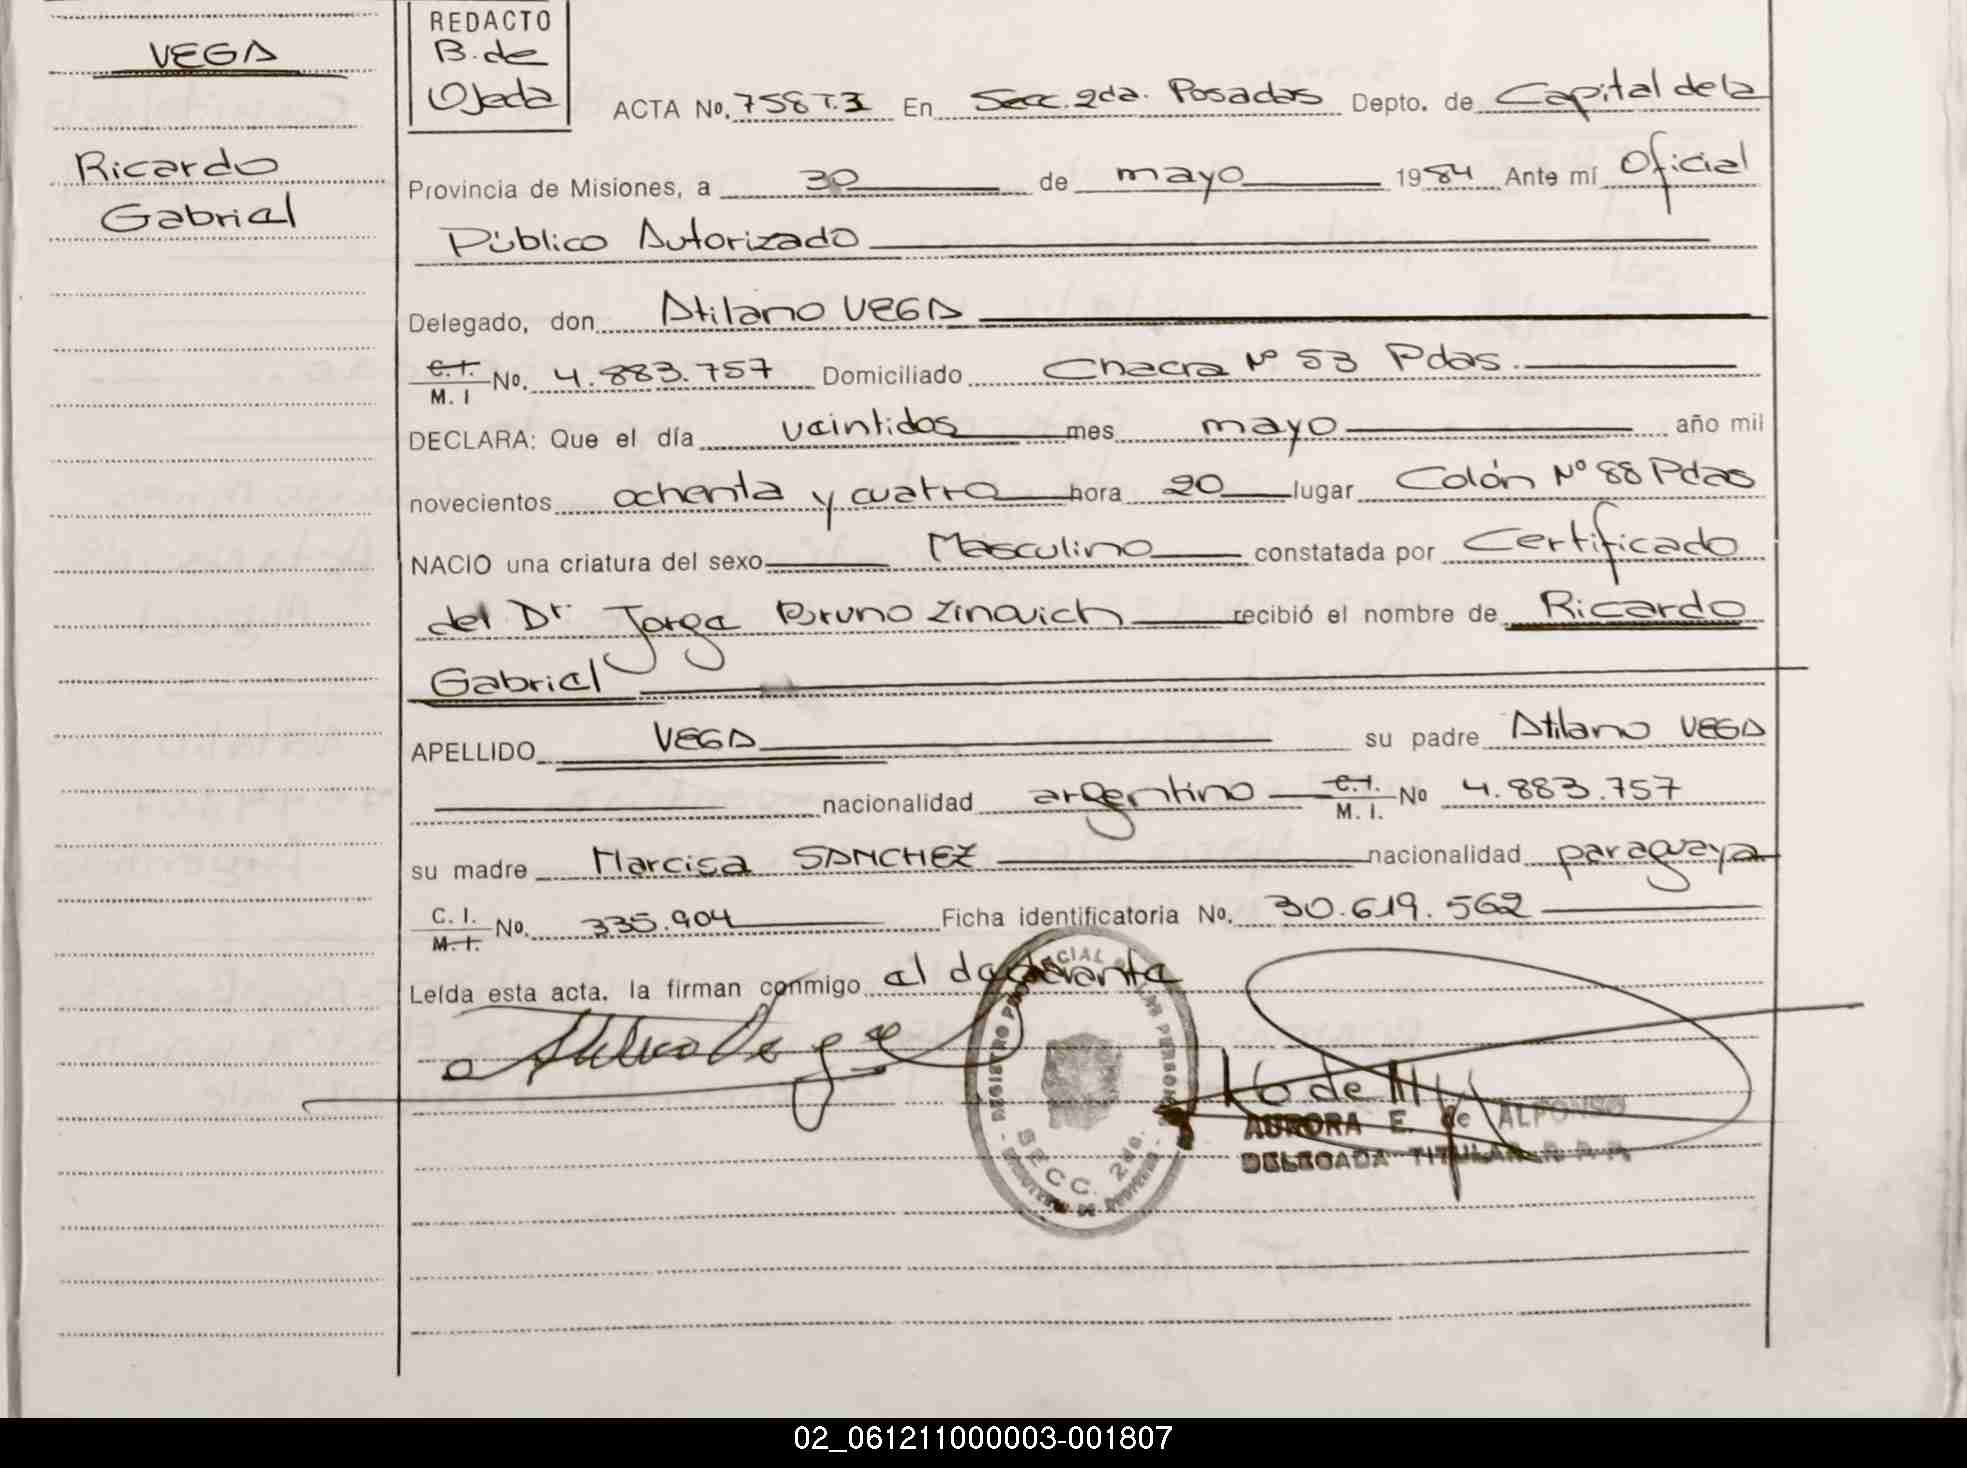 VEGA
Ricardo
Gabriel
REDACTO
B. de
Ojeda
ACTA No. 758 T.3 En Secc. 2da. Posadas Depto. de Capital de la
Provincia de Misiones, a 30 de mayo 1984 Ante mí Oficial
Público Autorizado
Delegado, don Atilano VEGA
C.I. M. I No. 4.883.757 Domiciliado Chacra Nº 53 Pdas.
DECLARA: Que el día veintidos mes mayo año mil
novecientos ochenta y cuatro hora 20 lugar Colón Nº 88 Pdas
NACIO una criatura del sexo Masculino constatada por Certificado
del Dr. Jorge Bruno Zinovich recibió el nombre de Ricardo
Gabriel
APELLIDO VEGA su padre Atilano VEGA
nacionalidad argentino C.I. M. I. No 4.883.757
su madre Narcisa SANCHEZ nacionalidad paraguaya
C. I. M. I. No. 335.904 Ficha identificatoria No. 30.619.562
Leída esta acta, la firman conmigo el declarante
REGISTRO PROVINCIAL DE LAS PERSONAS
SECC. 2da.
AURORA E. de ALFONSO
DELEGADA TITULAR R. P. P.
02_061211000003-001807